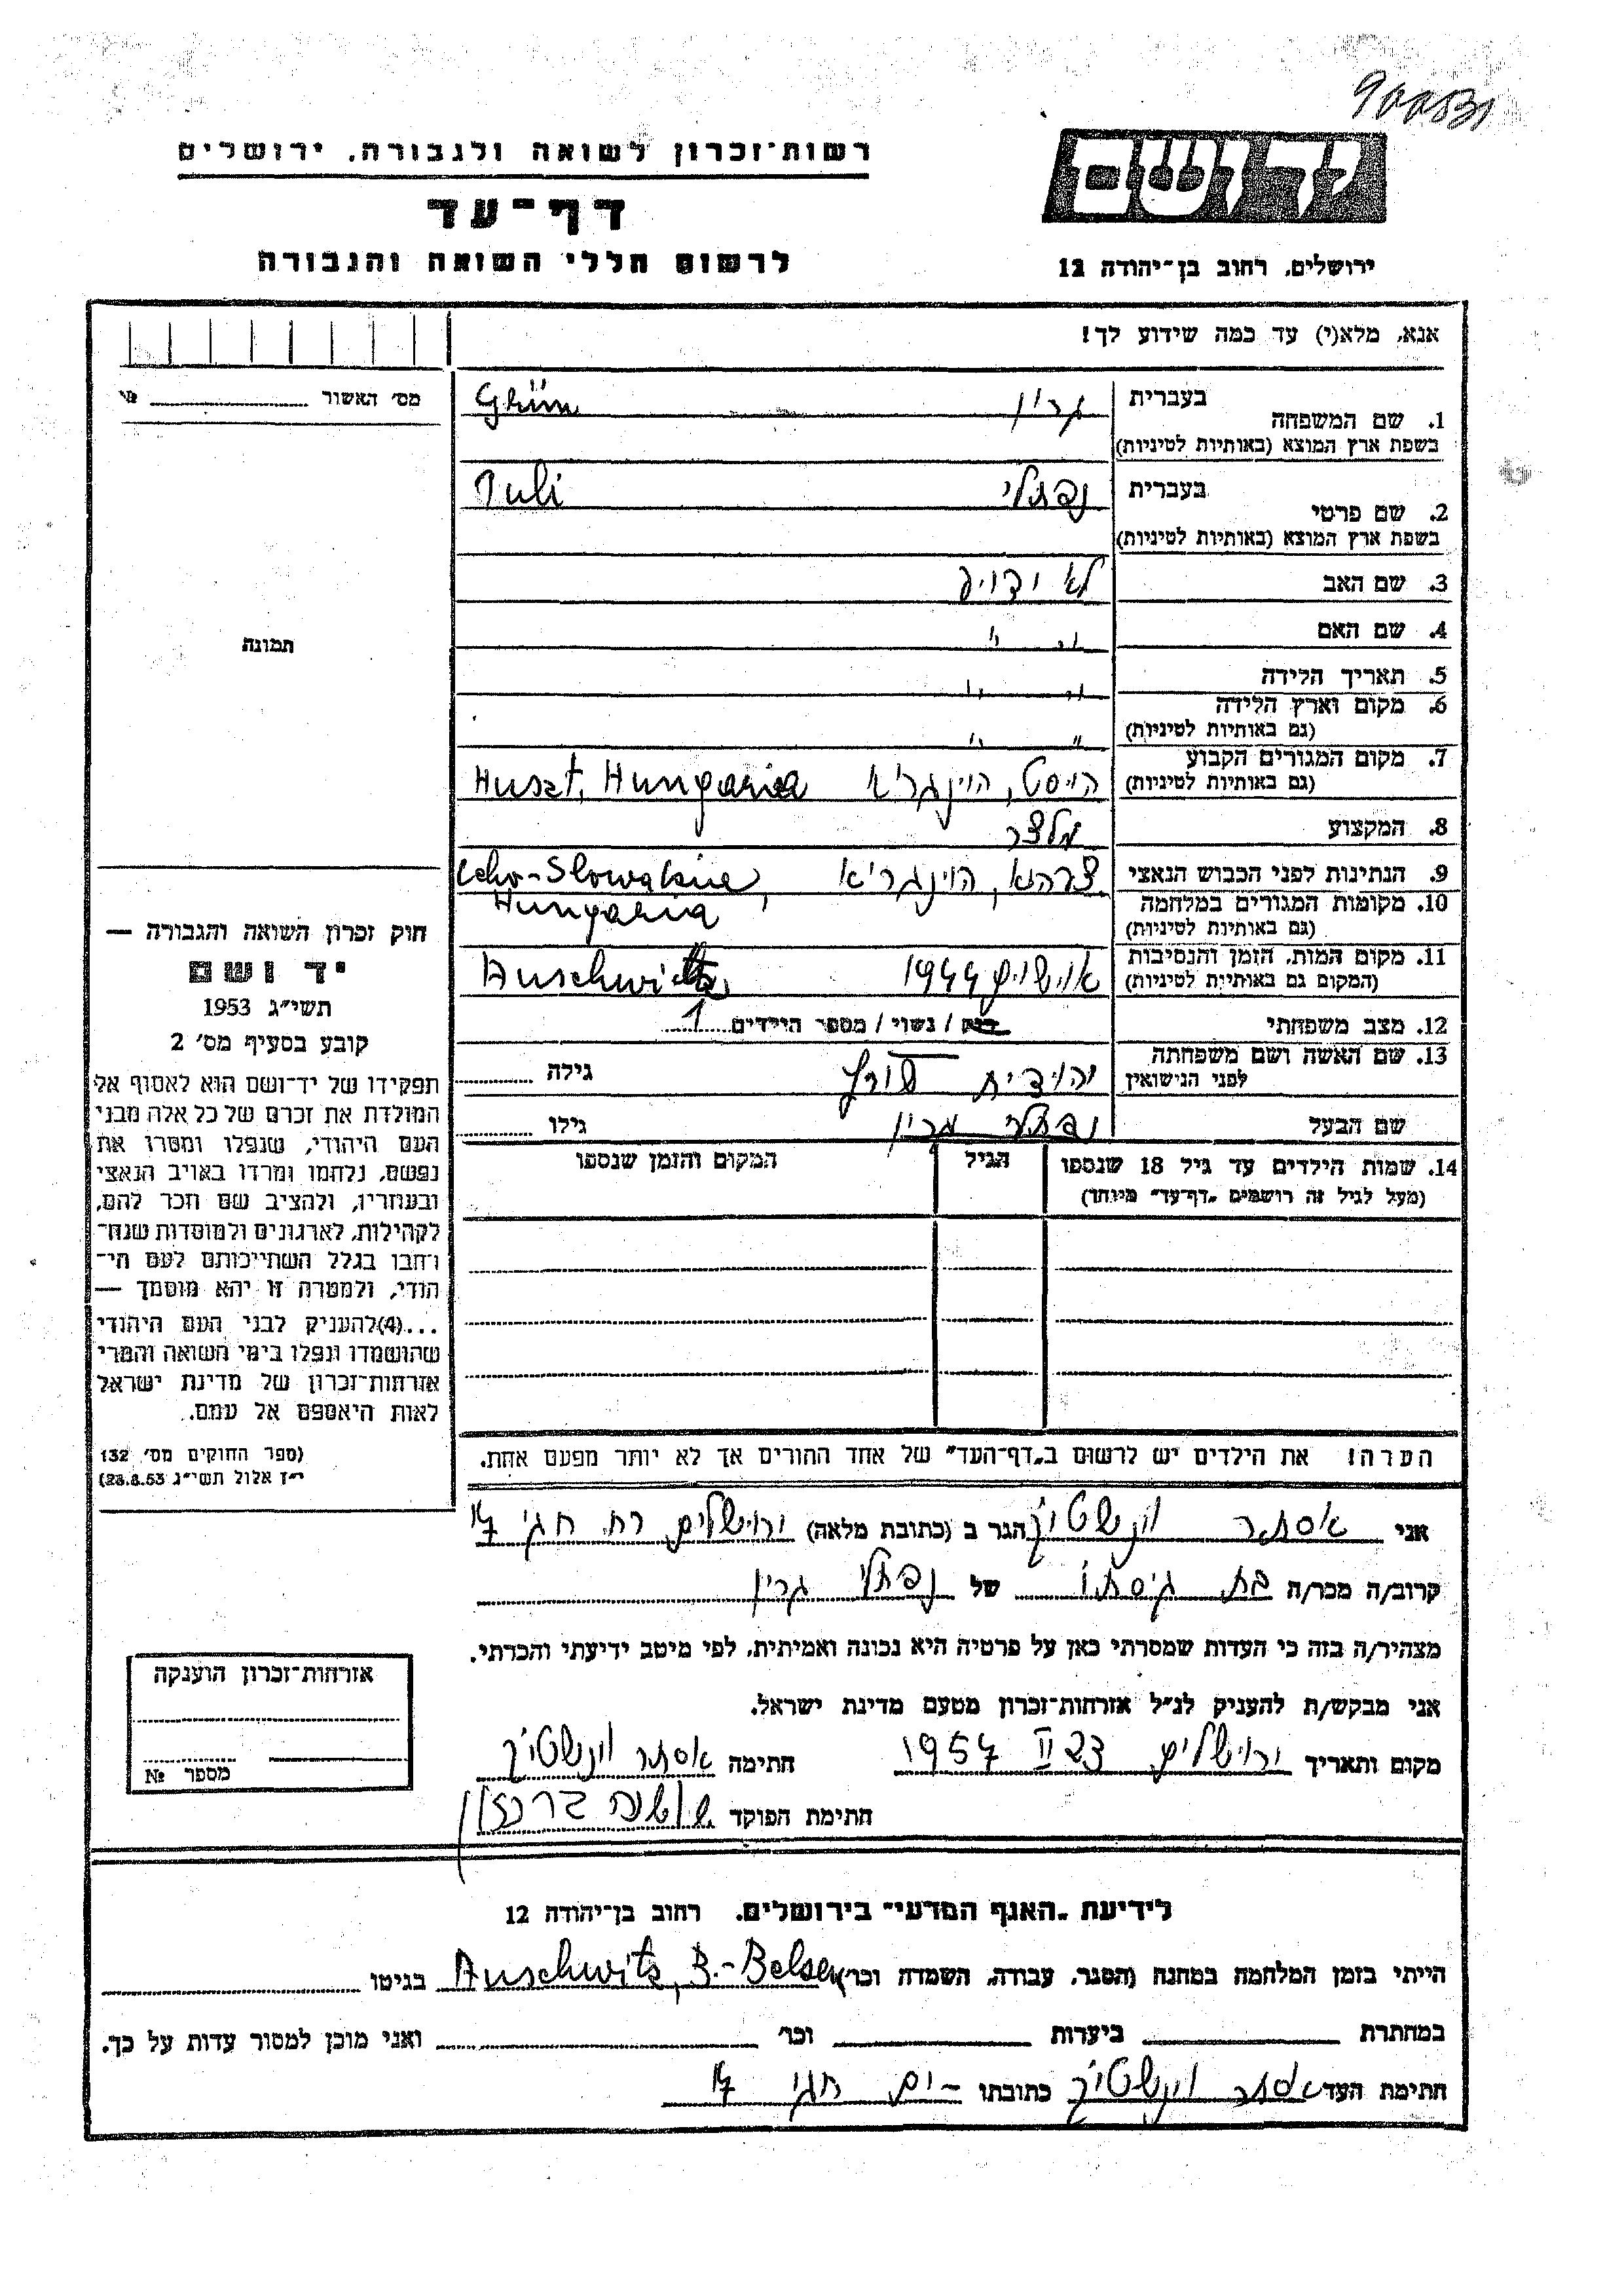 רשות־זכרון לשואה ולגבורה, ירושלים
דף־עד
לרשום חללי השואה והגבורה
יד ושם
ירושלים, רחוב בן־יהודה 12
אנא, מלא(י) עד כמה שידוע לך!
מס' האשור № 
1. שם המשפחה בעברית גרין Grün
בשפת ארץ המוצא (באותיות לטיניות)
2. שם פרטי בעברית נפתלי Tuli
בשפת ארץ המוצא (באותיות לטיניות)
3. שם האב לא ידוע
4. שם האם " "
5. תאריך הלידה " "
6. מקום וארץ הלידה " "
(גם באותיות לטיניות)
7. מקום המגורים הקבוע הוסט, הונגריא Huszt, Hungaria
(גם באותיות לטיניות)
8. המקצוע מלצר
9. הנתינות לפני הכבוש הנאצי הונגריא
10. מקומות המגורים במלחמה Hungaria
(גם באותיות לטיניות)
11. מקום המות, הזמן והנסיבות אושויץ 1944 Auschwitz
(המקום גם באותיות לטיניות)
12. מצב משפחתי רווק / נשוי / מספר הילדים 1
13. שם האשה ושם משפחתה יהודית גילה
לפני הנישואין
שם הבעל נפתלי גרין גילו
14. שמות הילדים עד גיל 18 שנספו הגיל המקום והזמן שנספו
(מעל לגיל זה רושמים "דף־עד" מיוחד)
הערה! את הילדים יש לרשום ב"דף־העד" של אחד ההורים אך לא יותר מפעם אחת.
תמונה
חוק זכרון השואה והגבורה —
יד ושם
תשי"ג 1953
קובע בסעיף מס' 2
תפקידו של יד־ושם הוא לאסוף אל
המולדת את זכרם של כל אלה מבני
העם היהודי, שנפלו ומסרו את
נפשם, נלחמו ומרדו באויב הנאצי
ובעוזריו, ולהציב שם וזכר להם,
לקהילות, לארגונים ולמוסדות שנח־
רבו בגלל השתייכותם לעם הי־
הודי, ולמטרה זו יהא מוסמך —
...(4) להעניק לבני העם היהודי
שהושמדו ונפלו בימי השואה והמרי
אזרחות־זכרון של מדינת ישראל
לאות היאספם אל עמם.
(ספר החוקים מס' 132
י"ז אלול תשי"ג 28.8.53)
אני אסתר הגר ב (כתובת מלאה) ירושלים רח. חגי 17
קרוב/ה מכר/ה בת גיסתו של נפתלי גרין
מצהיר/ה בזה כי העדות שמסרתי כאן על פרטיה היא נכונה ואמיתית, לפי מיטב ידיעתי והכרתי.
אני מבקש/ת להעניק לנ"ל אזרחות־זכרון מטעם מדינת ישראל.
מקום ותאריך ירושלים 23 II 1957 חתימה אסתר
חתימת הפוקד שושנה
אזרחות־זכרון הוענקה
מספר №
לידיעת "האגף המדעי" בירושלים, רחוב בן־יהודה 12
הייתי בזמן המלחמה במחנה (הסגר, עבודה, השמדה וכר') Auschwitz, B.-Belsen בגיטו
במחתרת ביערות וכר' ואני מוכן למסור עדות על כך.
חתימת העד אסתר כתובתו חגי 17